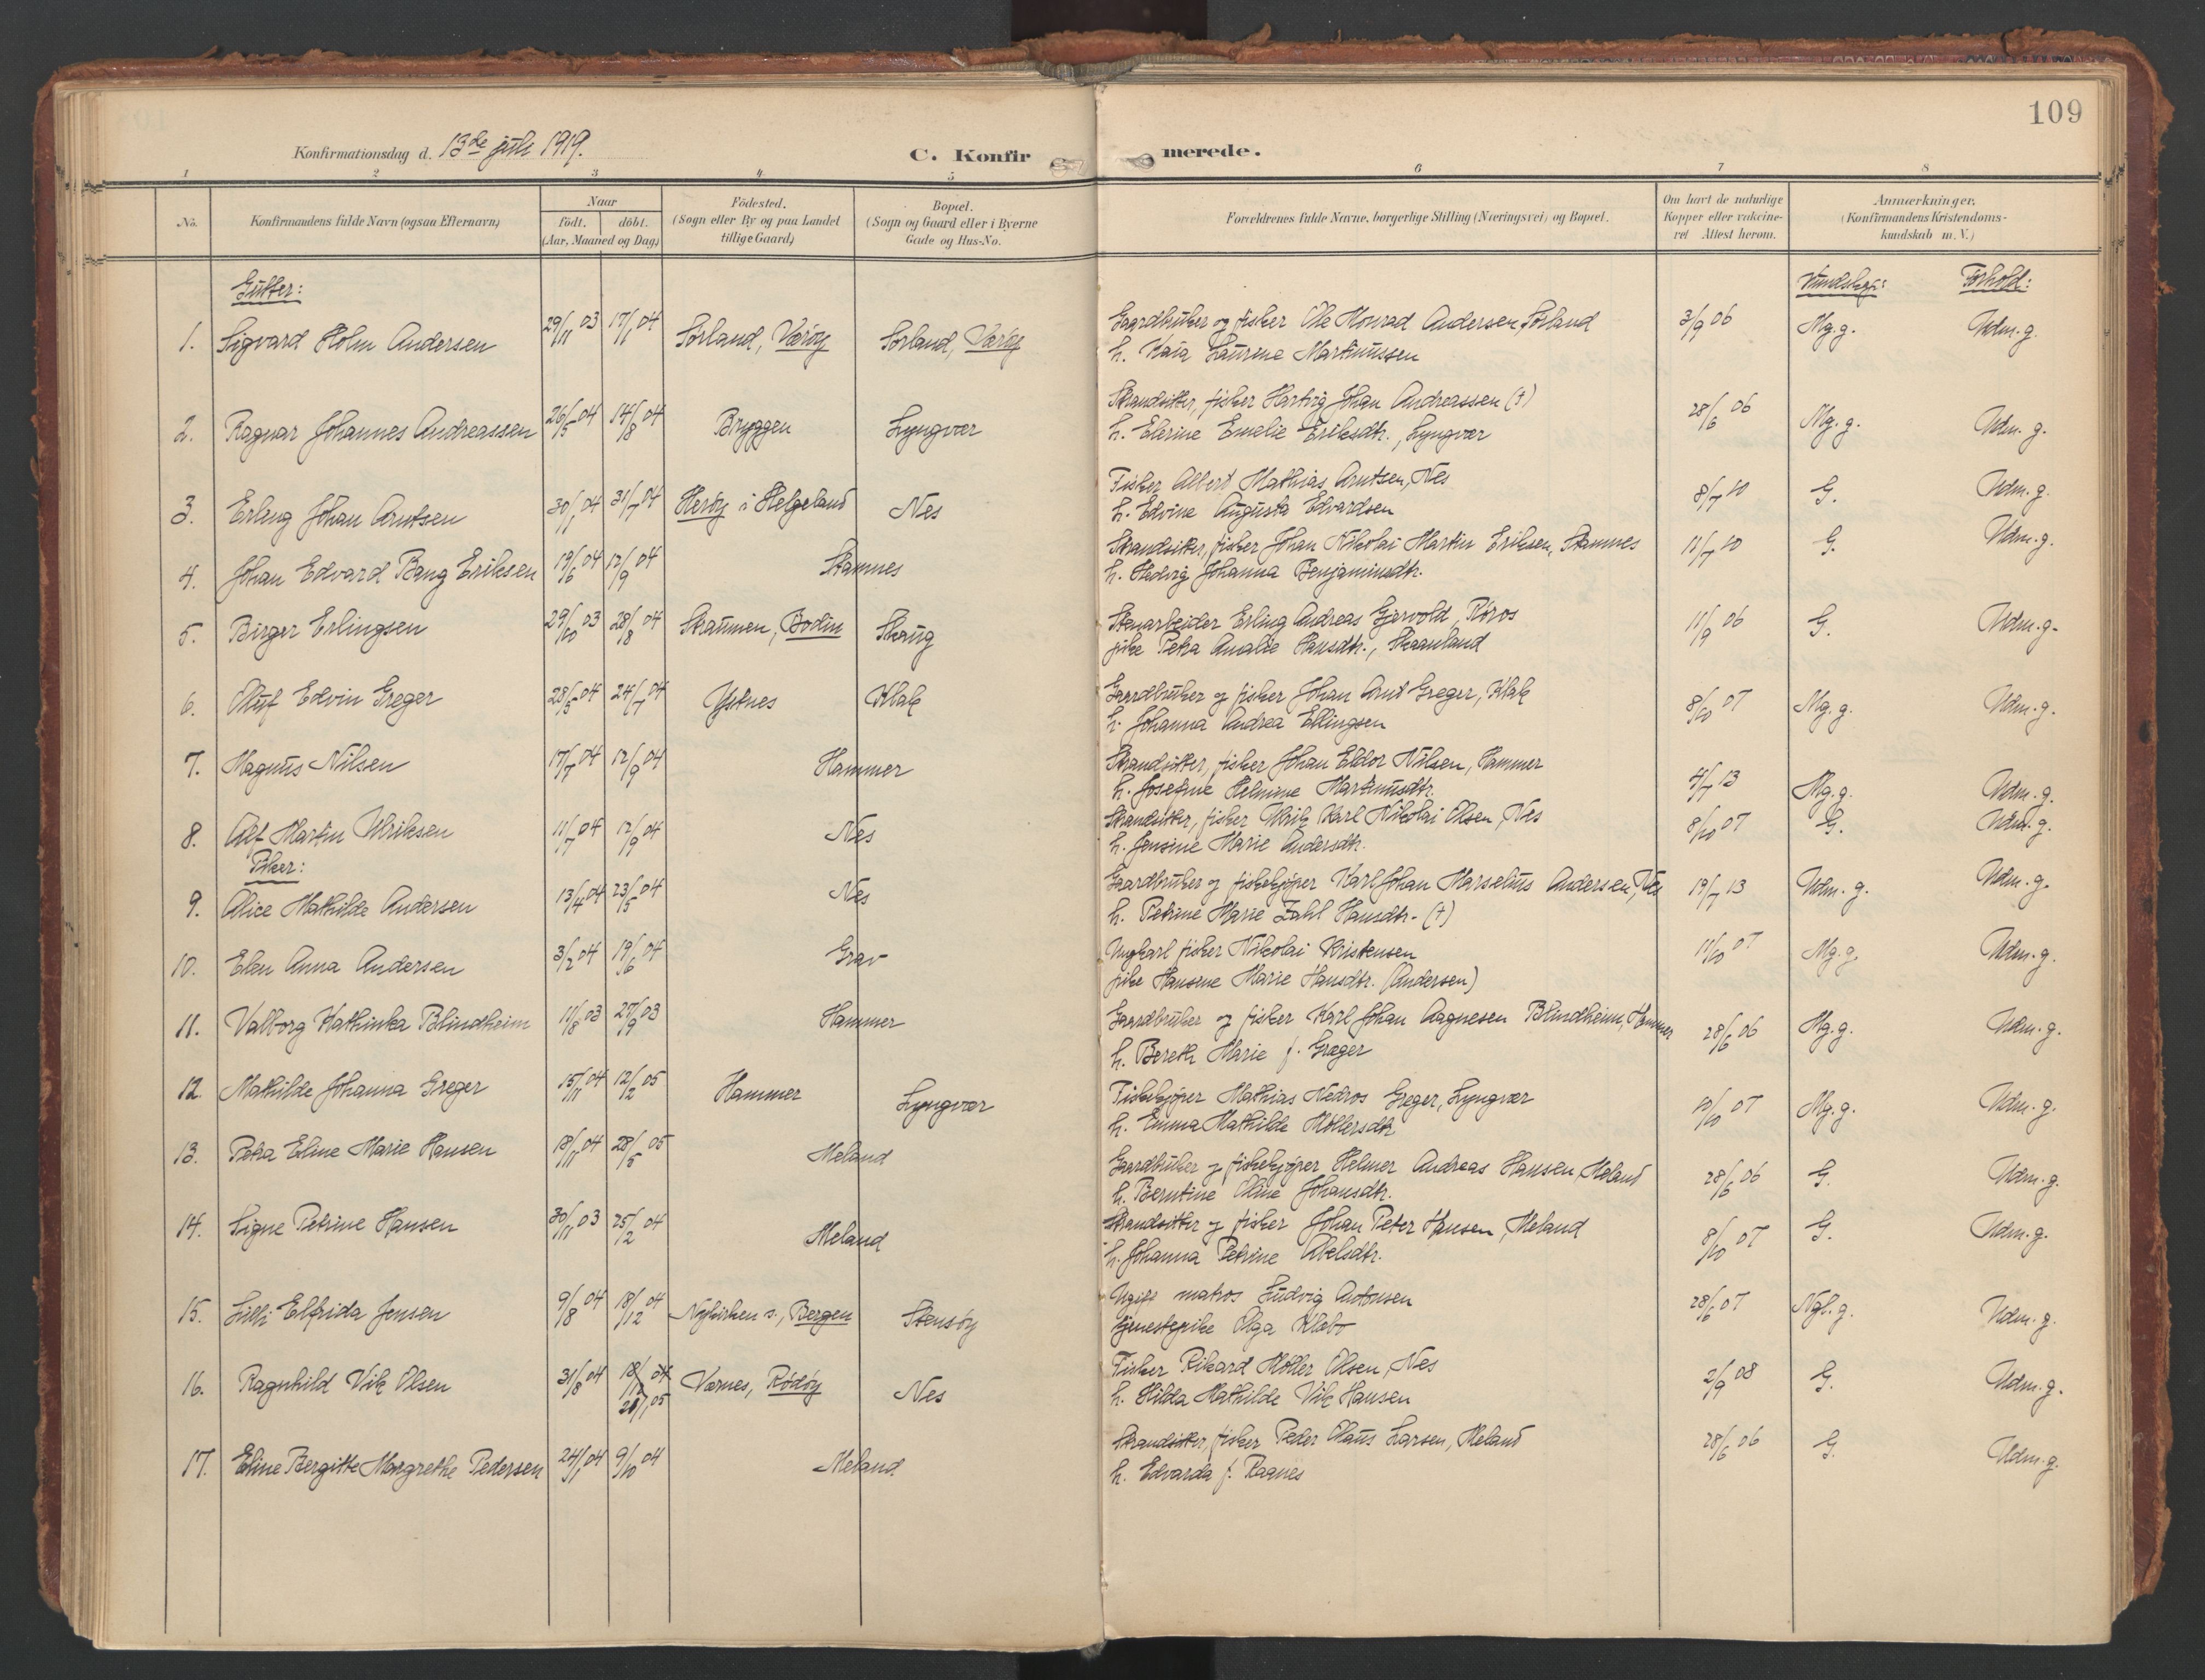 109
Konfirmationsdag d. 13de juli 1919.
C. Konfirmerede.
1 2 3 4 5 6 7 8
No.
Konfirmandens fulde Navn (ogsaa Efternavn)
Naar
födt. döbt.
(Aar, Maaned og Dag)
Födested.
(Sogn eller By og paa Landet
tillige Gaard)
Bopæl.
(Sogn og Gaard eller i Byerne
Gade og Hus-No.
Forældrenes fulde Navne, borgerlige Stilling (Næringsvei) og Bopæl.
Om havt de naturlige
Kopper eller vakcine-
ret Attest herom.
Anmærkninger.
(Konfirmandens Kristendoms-
kundskab m. V.)
Gutter: Kundskap: Forhold:
1. Sigvard Holm Andersen 29/11 03 17/1 04 Sørland, Værøy Sørland, Værøy Gaardbruker og fisker Ole Monrad Andersen, Sørland 3/9 06 Mg. g. Udm. g.
h. Kaia Laurine Martinussen
2. Ragnar Johannes Andreassen 26/5 04 14/8 04 Bryggen Lyngvær Strandsitter, fisker Hartvig Johan Andreassen (†) 28/6 06 Mg. g. Udm. g.
h. Elerine Emelie Eriksdtr., Lyngvær
3. Erling Johan Arntsen 30/1 04 31/7 04 Herøy i Helgeland Nes Fisker Albert Mathias Arntsen, Nes 8/7 10 G. Udm. g.
h. Edvine Augusta Edvardsen
4. Johan Edvard Bang Eriksen 19/6 04 12/9 04 Stamnes Strandsitter, fisker Johan Nikolai Martin Eriksen, Stamnes 11/7 10 G. Udm. g.
h. Hedvig Johanna Benjaminsdtr.
5. Birger Erlingsen 29/10 03 28/8 04 Straumen, Bodin Skaug Stenarbeider Erling Andreas Gjervold, Røros 11/9 06 G. Udm. g.
pike Petra Amalie Hansdtr., Skaanland
6. Oluf Edvin Greger 28/5 04 24/7 04 Ystnes Klak Gaardbruker og fisker Johan Arnt Greger, Klak 8/10 07 Mg. g. Udm. g.
h. Johanna Andrea Ellingsen
7. Magnus Nilsen 17/7 04 12/9 04 Hammer Strandsitter, fisker Johan Eldor Nilsen, Hammer 4/7 13 Mg. g. Udm. g.
h. Josefine Helmine Martinusdtr.
8. Alf Martin Ulriksen 11/7 04 12/9 04 Nes Strandsitter, fisker Ulrik Karl Nikolai Olsen, Nes 8/10 07 G. Udm. g.
h. Jensine Marie Andersdtr.
Piker:
9. Alice Mathilde Andersen 13/4 04 23/5 04 Nes Gaardbruker og fiskekjøper Karl Johan Marselius Andersen, Nes 19/7 13 Udm. g. Udm. g.
h. Petrine Marie Zahl Hansdtr. (†)
10. Elen Anna Andersen 3/2 04 19/6 04 Grav Ungkarl fisker Nikolai Kristensen 11/10 07 Mg. g. Udm. g.
pike Hansine Marie Hansdtr. (Andersen)
11. Valborg Kathinka Blindheim 11/8 03 27/9 03 Hammer Gaardbruker og fisker Karl Johan Aagnesen Blindheim, Hammer 28/6 06 Mg. g. Udm. g.
h. Bereth Marie f. Græger
12. Mathilde Johanna Greger 15/11 04 12/2 05 Hammer Lyngvær Fiskekjøper Mathias Nedros Greger, Lyngvær 10/10 07 Mg. g. Udm. g.
h. Emma Mathilde Møllersdtr
13. Petra Eline Marie Hansen 18/11 04 28/5 05 Meland Gaardbruker og fiskekjøper Helmer Andreas Hansen, Meland 28/6 06 G. Udm. g.
h. Berntine Oline Johansdtr.
14. Signe Petrine Hansen 30/11 03 25/2 04 Meland Strandsitter og fisker Johan Peter Hansen, Meland 8/10 07 G. Udm. g.
h. Johanna Petrine Abelsdtr.
15. Lilli Elfrida Jensen 9/8 04 18/12 04 Nykirken s., Bergen Stensøy Ugift matros Ludvig Antonsen 28/6 07 Ngl. g. Udm. g.
tjenestepike Olga Klæbo
16. Ragnhild Vik Olsen 31/8 04 18/12 04 Værnes, Rødøy Nes Fisker Rikard Møller Olsen, Nes 2/9 08 G. Udm. g.
h. Hilda Mathilde Vik Hansen
17. Eline Bergitte Margrethe Pedersen 24/1 04 9/10 04 Meland Strandsitter, fisker Peder Olaus Larsen, Meland 28/6 06 G. Udm. g.
h. Edvarda f. Ragnes